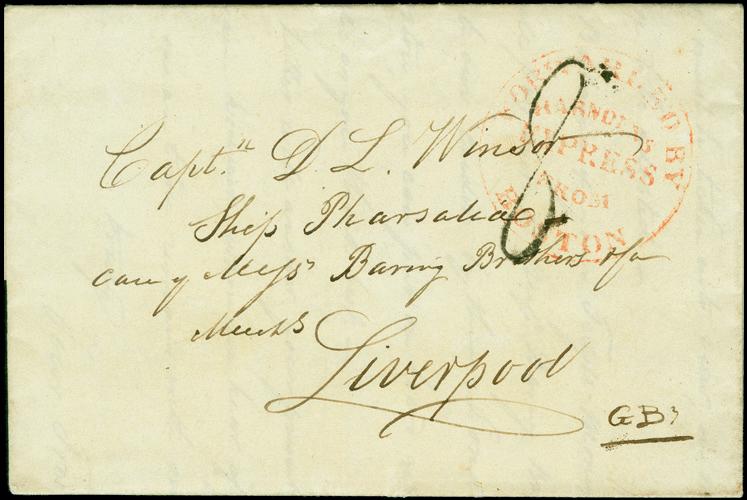 Capt.ⁿ D L. Winsor
Ship Pharsalia
care of Messrs Baring Brothers & Co
Mercht.s
Liverpool
8
FORWARDED BY
HARNDEN'S
EXPRESS
FROM
BOSTON